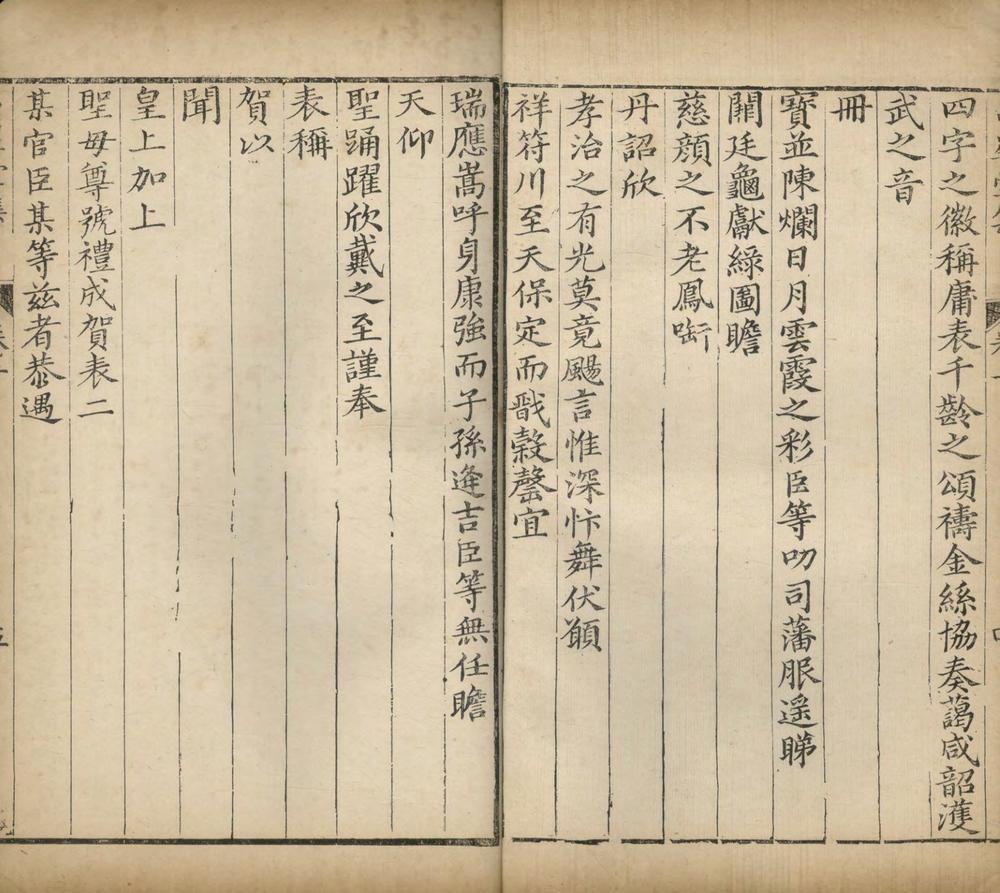 四字之徽稱庸表千齡之頌禱金絲協奏藹咸韶濩
武之音
冊
寶並陳爛日月雲霞之彩臣等叨司藩服遥睇
闕廷龜獻綠圖瞻
慈顔之不老鳳啣
丹詔欣
孝治之有光莫竟颺言惟深忭舞伏願
祥符川至天保定而戩榖罄宜
瑞應嵩呼身康強而子孫逢吉臣等無任瞻
天仰
聖踊躍欣戴之至謹奉
表稱
賀以
聞
皇上加上
聖母尊號禮成賀表二
某官臣某等兹者恭遇